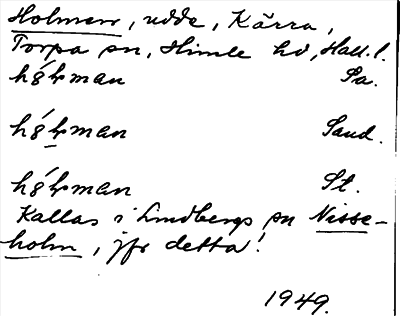 Holmen, udde, Kärra,
Torpa sn, Himle hd, Hall. l.
Sa.
Sand.
St.
Kallas i Lindbergs sn Nisse-
holm, jfr detta!
1949.